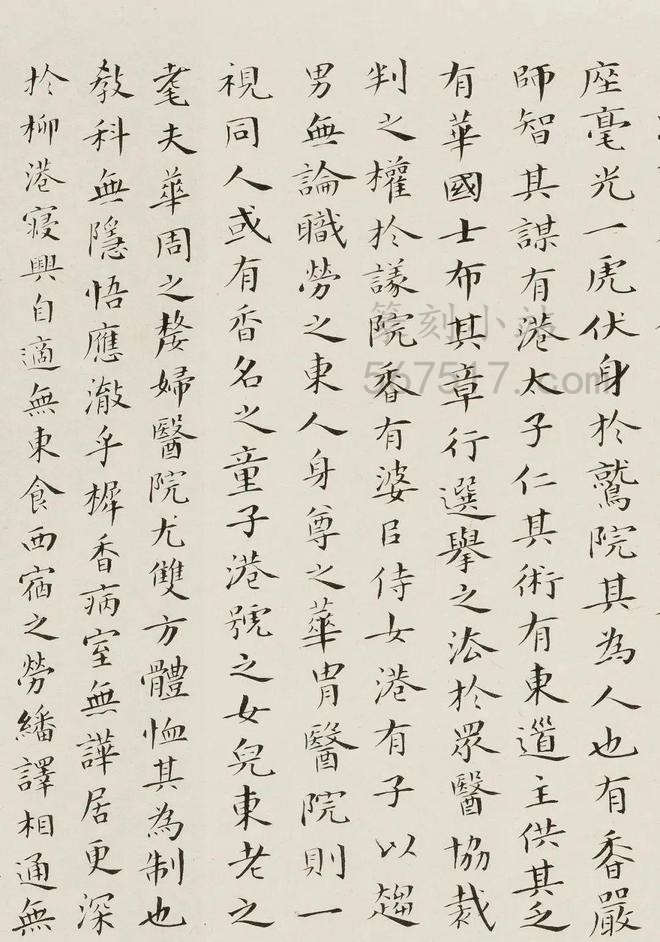 座毫光一虎伏身於鷲院其為人也有香嚴
師智其謀有港太子仁其術有東道主供其乏
有華國士布其章行選舉之法於眾醫協裁
判之權於議院香有婆臣侍女港有子以趨
男無論職勞之東人身尊之華胄醫院則一
視同人或有香名之童子港號之女兒東老之
耄夫華周之嫠婦醫院尤雙方體恤其為制也
教科無隱悟應澈乎樨香病室無譁居更深
於柳港寢興自適無東食西宿之勞繙譯相通無
篆刻小站
567517.com